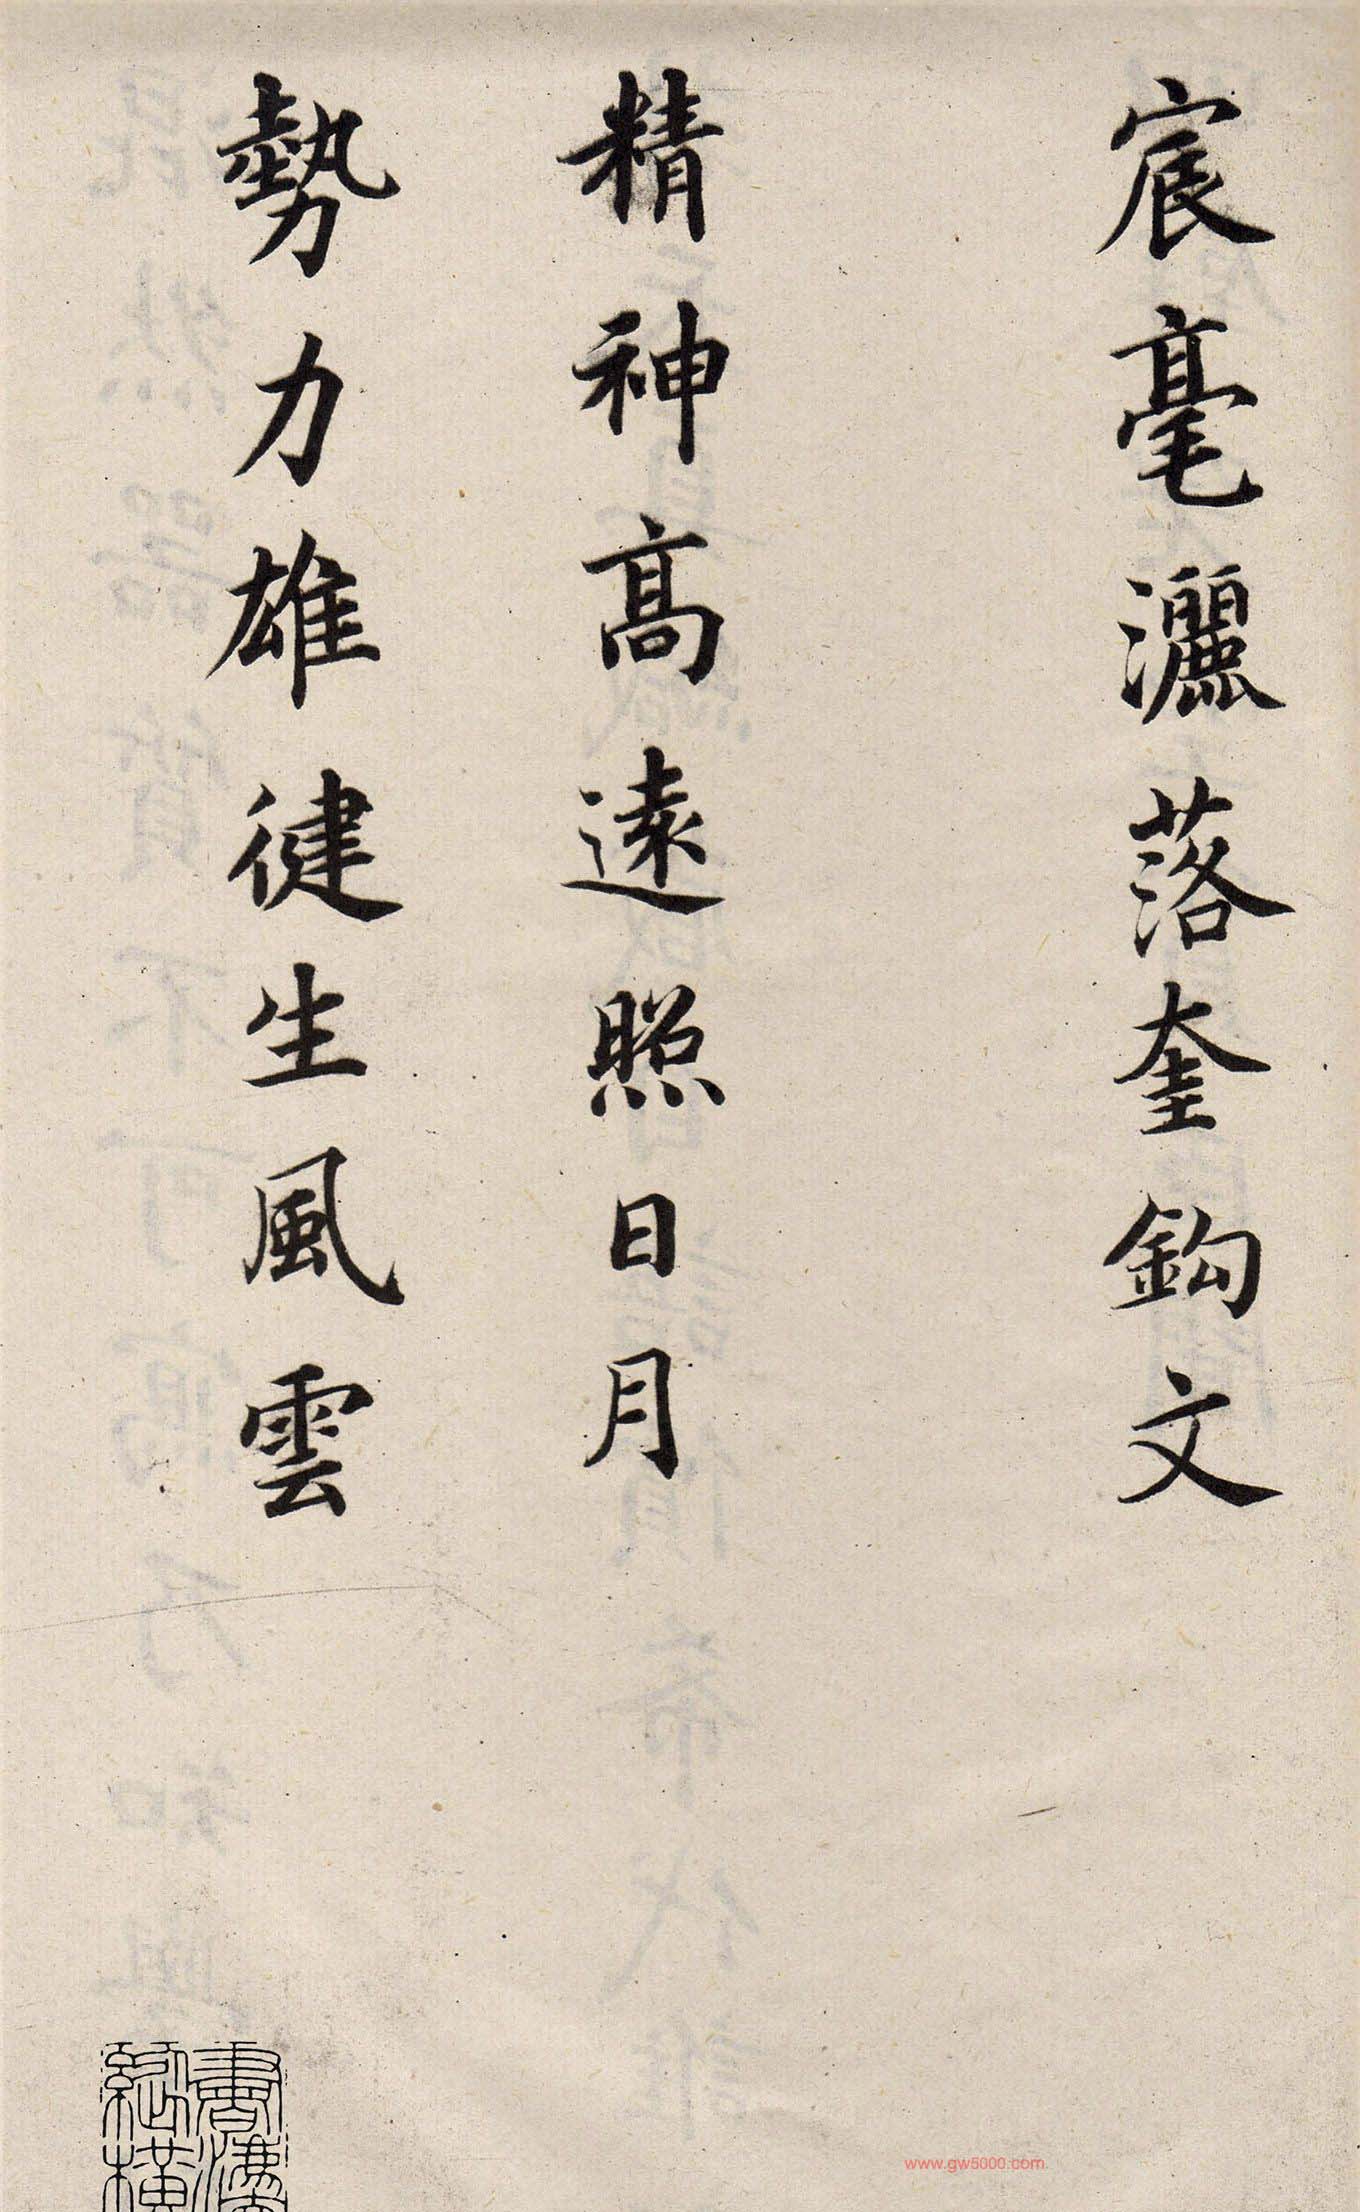 宸毫灑落奎鈎文
精神高遠照日月
勢力雄徤生風雲
www.gw5000.com